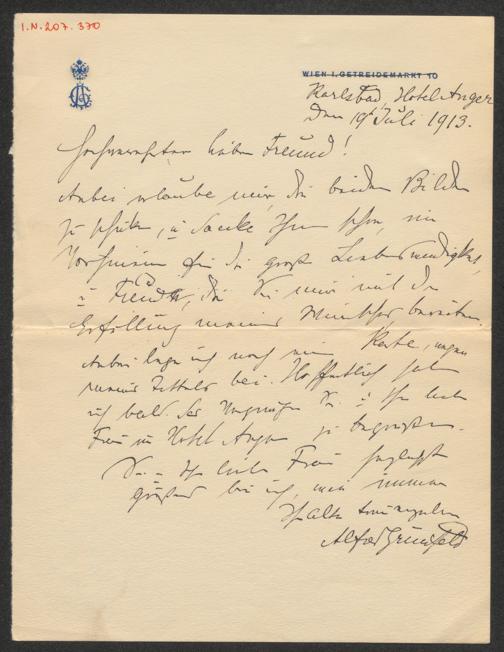 I.N. 207.370
WIEN I. GETREIDEMARKT 10
Karlsbad, Hotel Anger
den 19t Juli 1913.
Hochverehrter lieber Freund!
Anbei erlaube mir, die beiden Bilder
zu schicken, u danke Ihnen schon, im
Vorhinein für die große Liebenswürdigkeit,
u Freude, die Sie mir mit der
Erfüllung meines Wunsches bereiten.
Anbei lege ich noch eine Karte, wegen
meines Titels bei. Hoffentlich habe
ich bald das Vergnügen Sie u Ihre liebe
Frau im Hotel Anger zu begrüßen.
Sie u Ihre liebe Frau
grüßend bin ich, wie immer
Ihr alter
Alfred Grünfeld